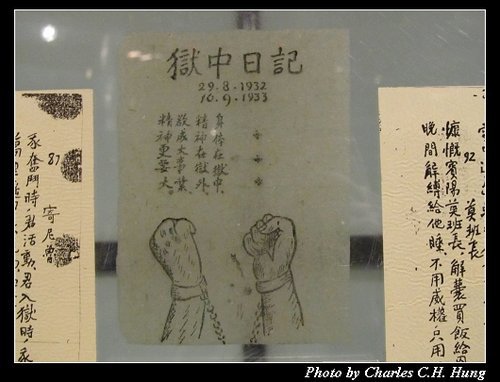 獄中日記
29.8.1932
10.9.1933
身体在獄中,
精神在獄外,
欲成大事業,
精神更要大。
92 莫班長
慷慨賓陽莫班長,解囊買飯給
晚間解縛給他睡,不用威權只用
87 寄尼魯
我奮鬥時君活動,君入獄時我
萬里
Photo by Charles C.H. Hung